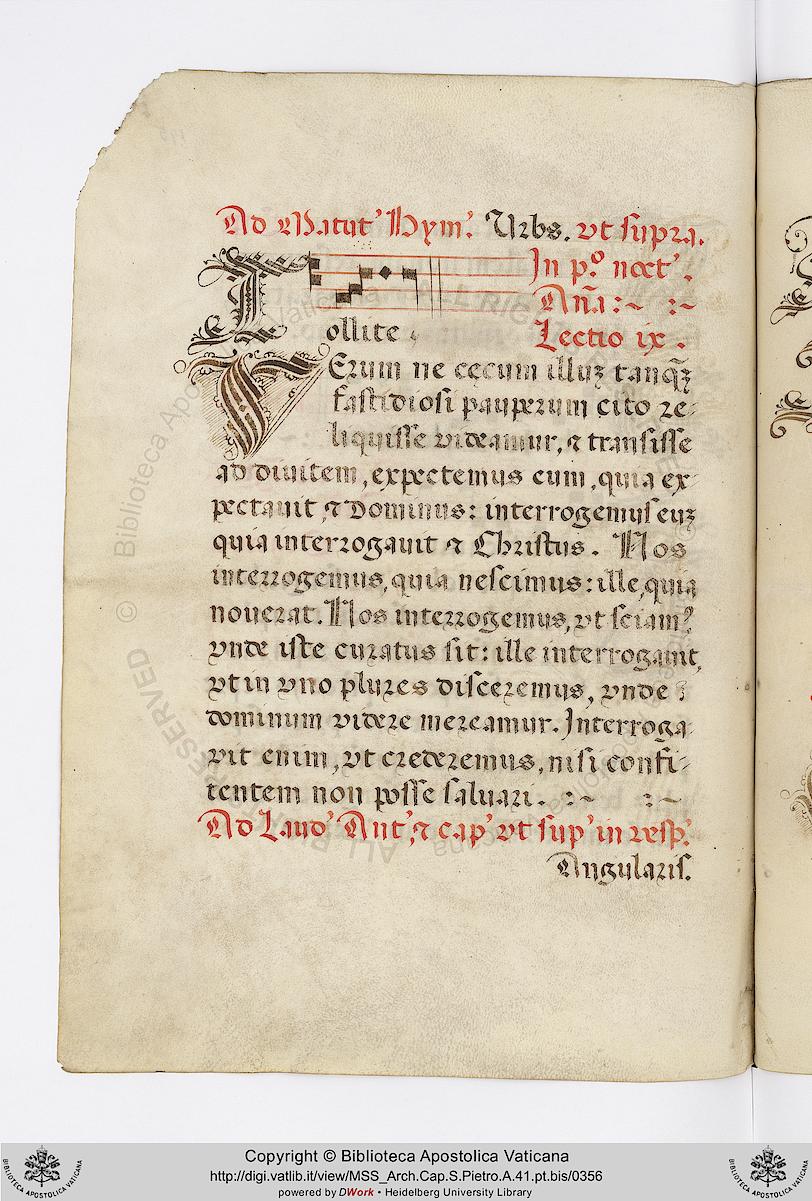 Ad Matut' Hym'. Urbs. vt supra.
In p.º noct'.
Añа :~ :~
Tollite
Lectio ix.
VErum ne cęcum illuȝ tanq̃ȝ
fastidiosi pauperum cito re-
liquisse videamur, ⁊ transisse
ad diuitem, expectemus eum, quia ex-
pectauit, ⁊ Dominus: interrogemus euȝ
quia interrogauit ⁊ Christus. Nos
interrogemus, quia nescimus: ille, quia
nouerat. Nos interrogemus, vt sciam?
vnde iste curatus sit: ille interrogauit,
vt in vno plures disceremus, vnde
dominum videre mereamur. Interroga-
vit enim, vt crederemus, nisi confi-
tentem non posse saluari. :~ :~
Ad Laud' Ant', ⁊ cap' vt sup' in resp'.
Angularis.
Copyright © Biblioteca Apostolica Vaticana
http://digi.vatlib.it/view/MSS_Arch.Cap.S.Pietro.A.41.pt.bis/0356
powered by DWork • Heidelberg University Library